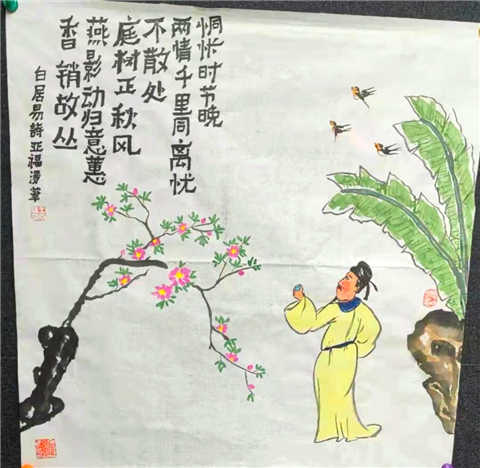 惆怅时节晚
两情千里同离忧
不散处
庭树正秋风
燕影动归意蕙
香销故丛
白居易詩亚福漫筆